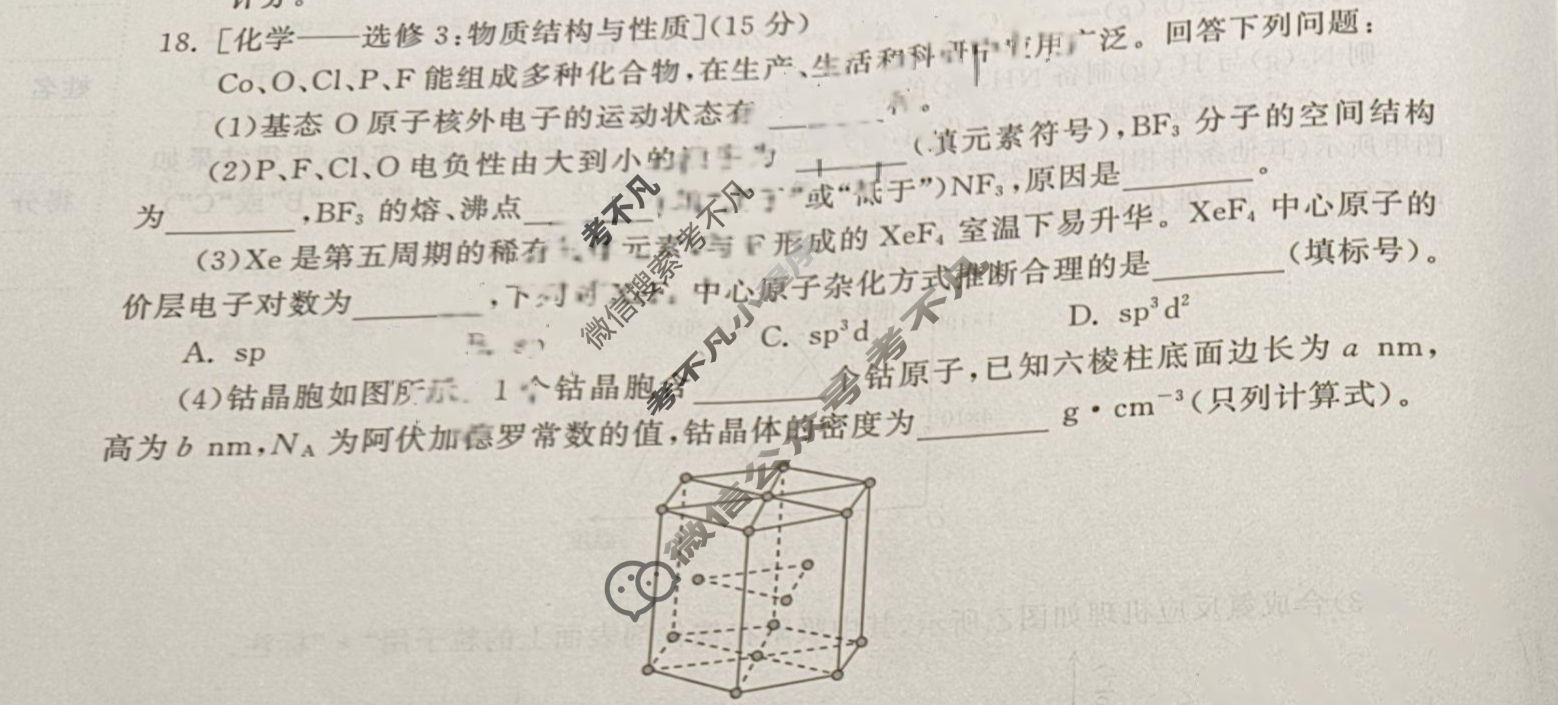 18. [化学——选修 3:物质结构与性质](15 分)
Co、O、Cl、P、F 能组成多种化合物,在生产、生活和科研中使用广泛。回答下列问题:
(1)基态 O 原子核外电子的运动状态有______。
(2)P、F、Cl、O 电负性由大到小的 为______(填元素符号),BF₃ 分子的空间结构
为______,BF₃ 的熔、沸点______ ”或“低于”)NF₃,原因是______。
(3)Xe 是第五周期的稀有 元素,与 F 形成的 XeF₄ 室温下易升华。XeF₄ 中心原子的
价层电子对数为______,下列 中心原子杂化方式推断合理的是______(填标号)。
A. sp B. sp C. sp³d D. sp³d²
(4)钴晶胞如图所示。1 个钴晶胞含______个钴原子,已知六棱柱底面边长为 a nm,
高为 b nm,N_A 为阿伏加德罗常数的值,钴晶体的密度为______ g·cm⁻³(只列计算式)。
考不凡
微信搜索考不凡
考不凡小程序
微信公众号考不凡